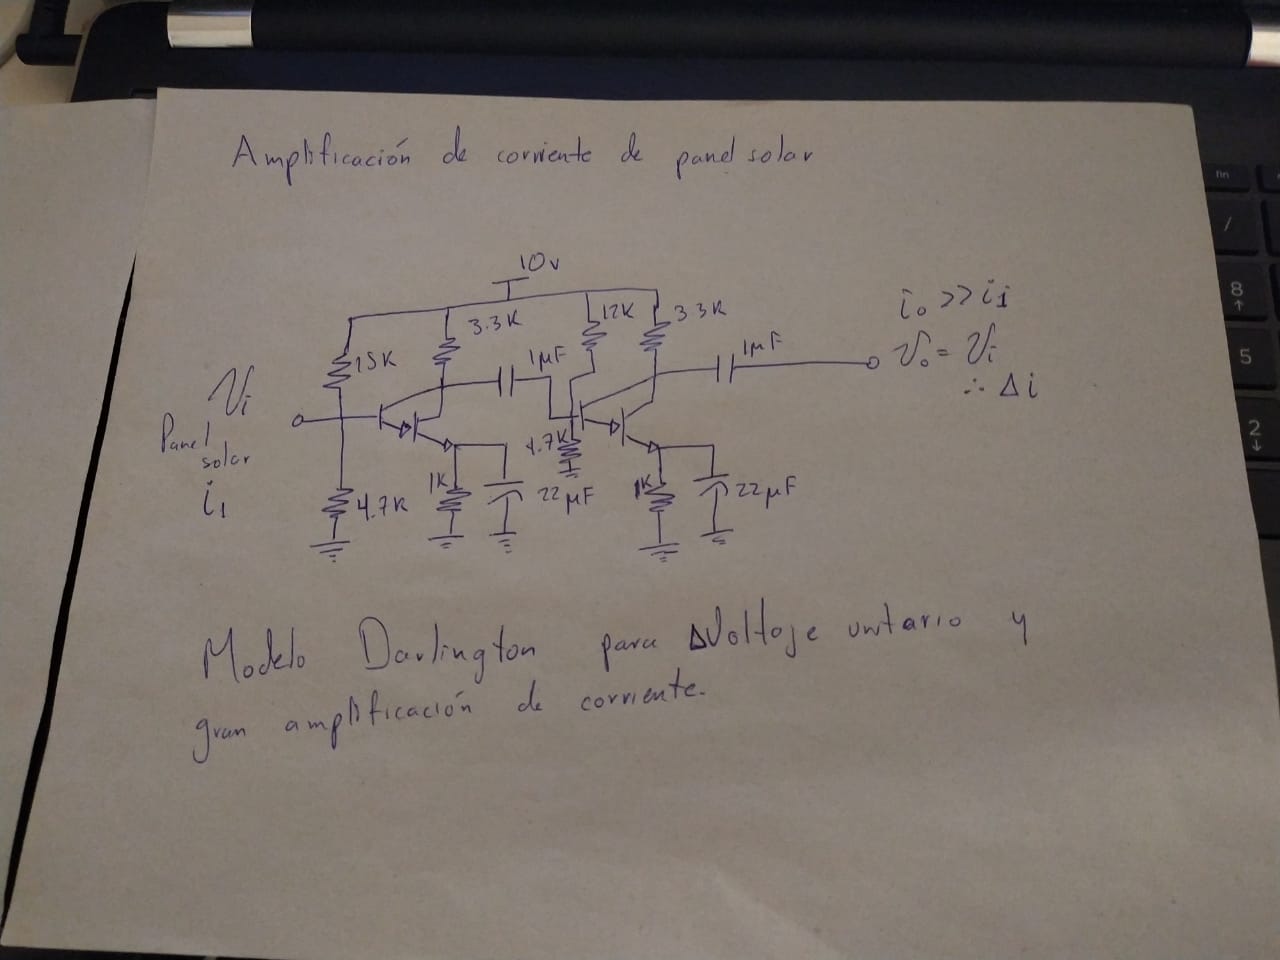 Amplificación de corriente de panel solar
10v
15K
3.3K
1µF
12K
3.3K
1µF
i₀ >> i₁
V₀ = Vi
∴ Δi
Vi
Panel
solar
i₁
4.7K
1K
22µF
4.7K
1K
22µF
Modelo Darlington para ΔVoltaje unitario y
gran amplificación de corriente.
fin
/
8
↑
5
2
↓